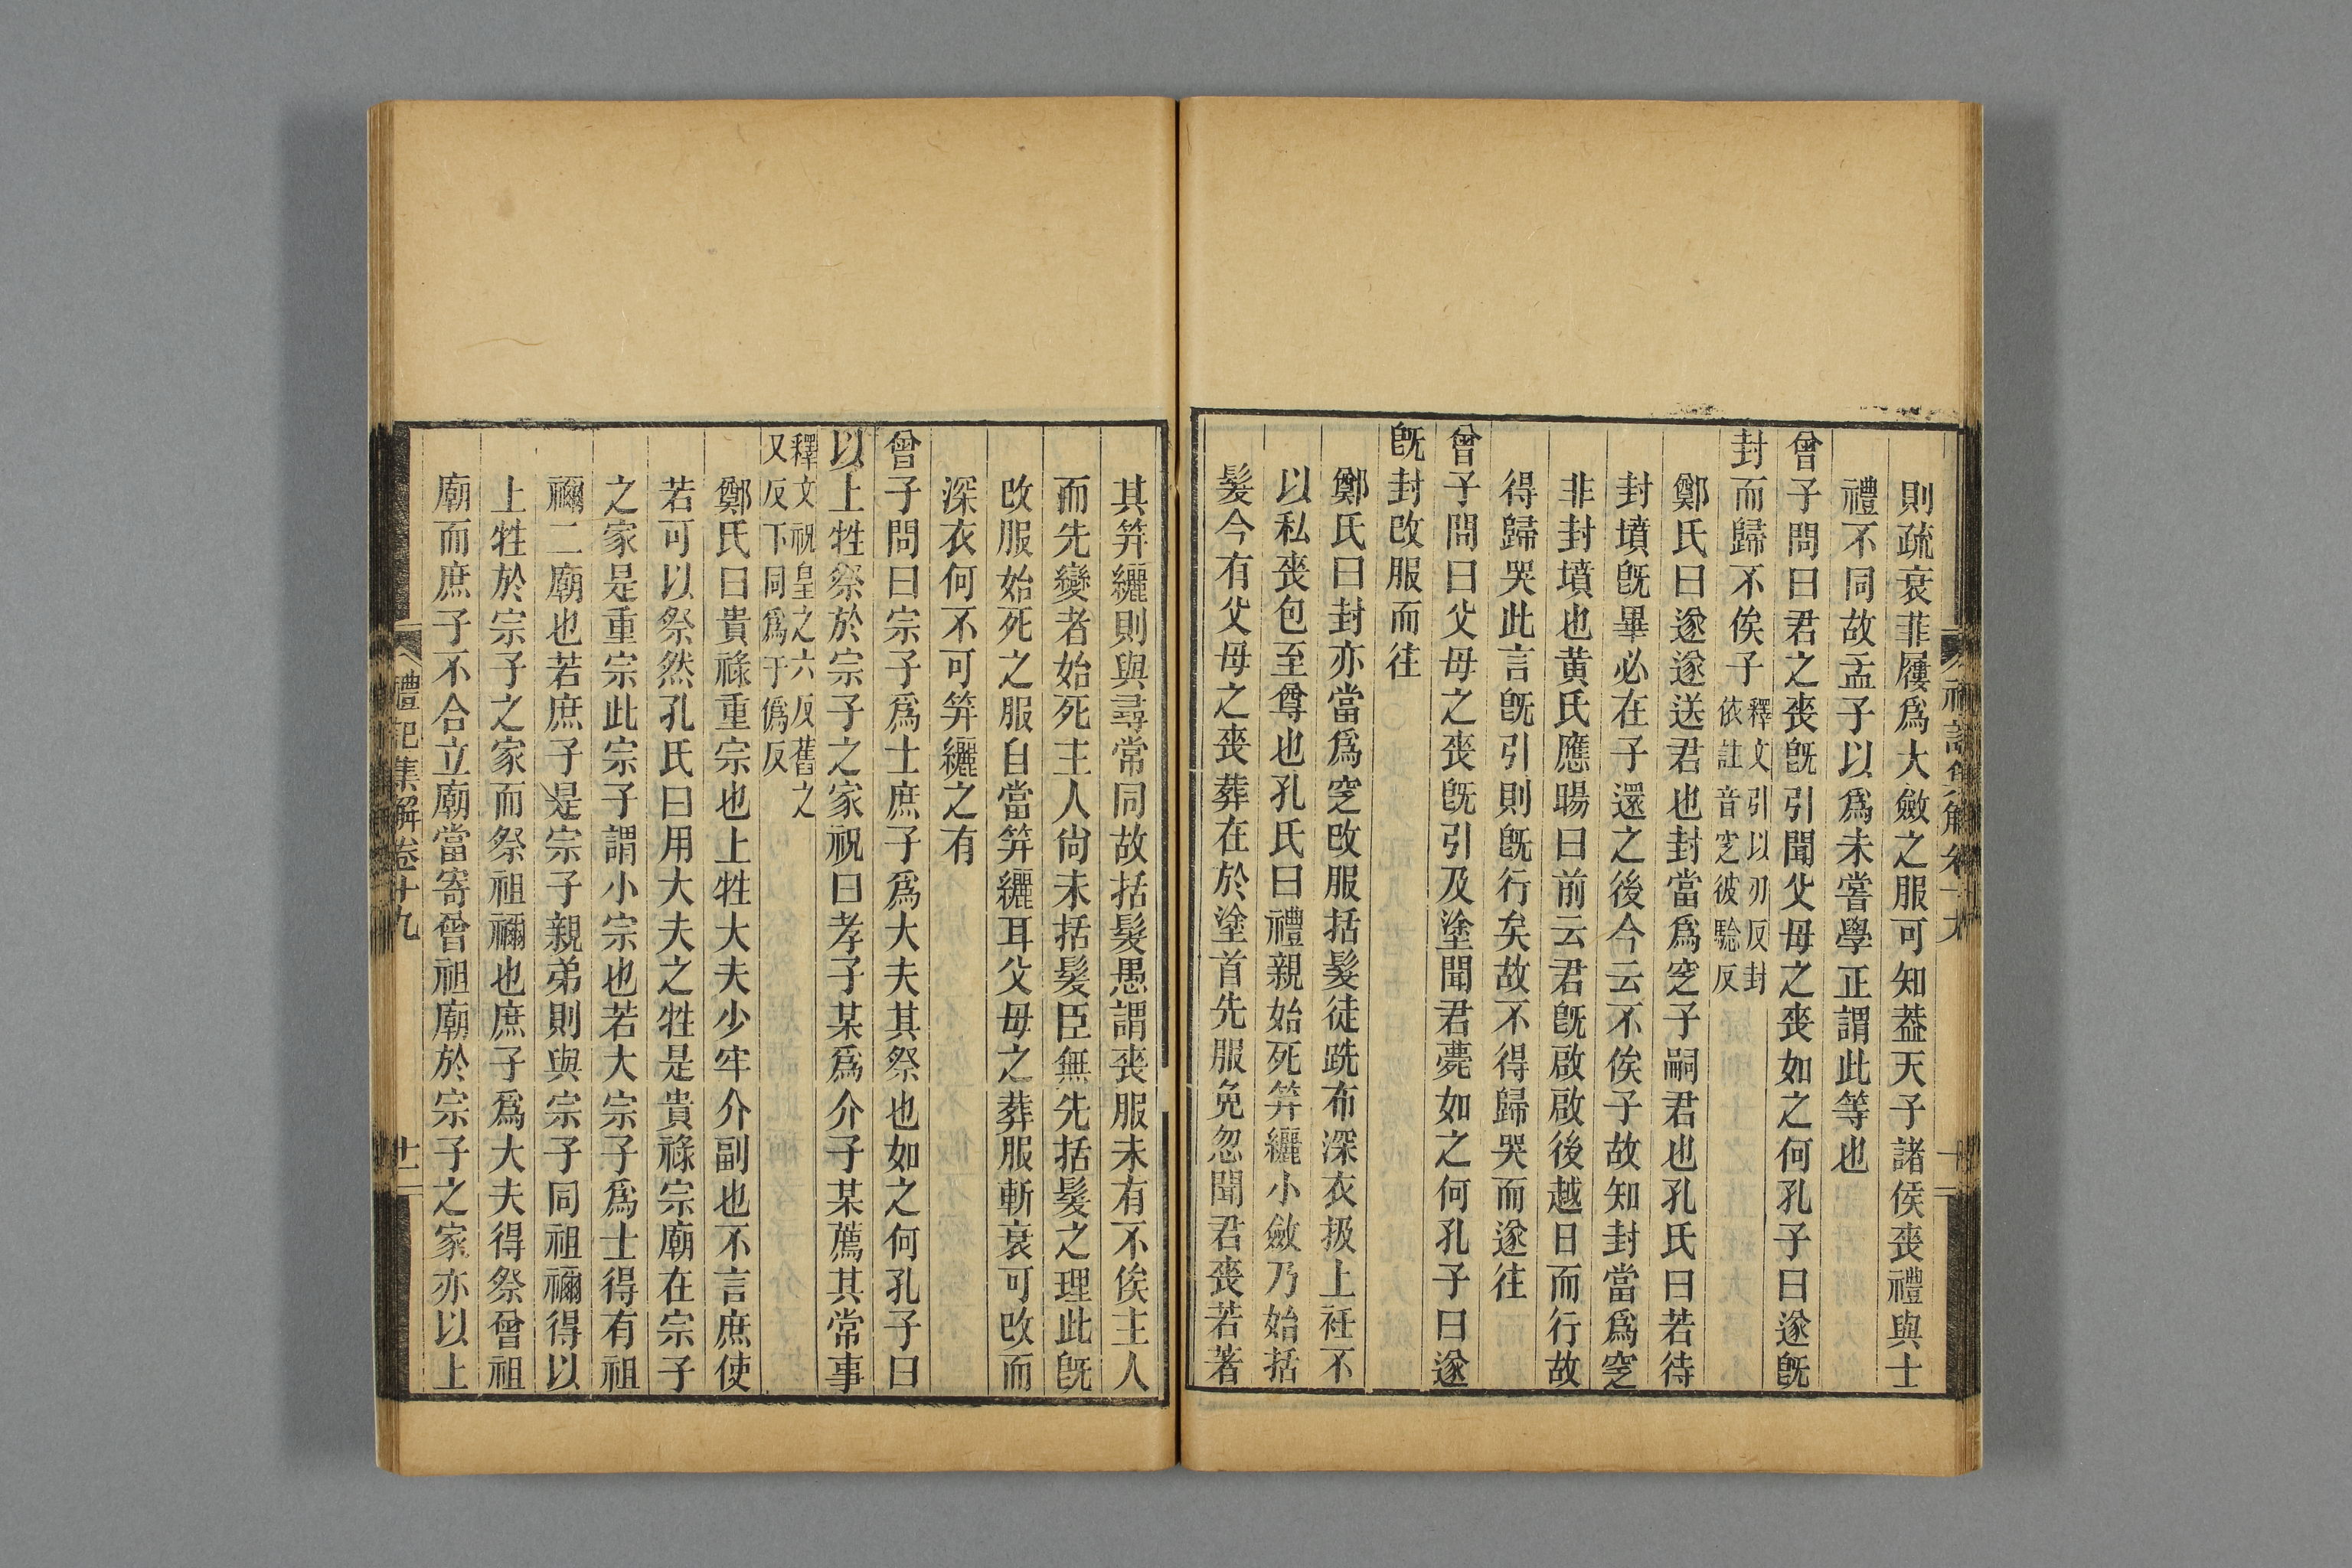 則疏衰菲屨爲大斂之服可知葢天子諸侯喪禮與士
禮不同故孟子以爲未嘗學正謂此等也
曾子問曰君之喪旣引聞父母之喪如之何孔子曰遂旣
封而歸不俟子釋文引以刃反封
依註音窆彼騐反
鄭氏曰遂遂送君也封當爲窆子嗣君也孔氏曰若待
封墳旣畢必在子還之後今云不俟子故知封當爲窆
非封墳也黄氏應暘曰前云君旣啟啟後越日而行故
得歸哭此言旣引則旣行矣故不得歸哭而遂往
曾子問曰父母之喪旣引及塗聞君薨如之何孔子曰遂
旣封改服而往
鄭氏曰封亦當爲窆改服括髮徒跣布深衣扱上衽不
以私喪包至尊也孔氏曰禮親始死笄纚小斂乃始括
髮今有父母之喪葬在於塗首先服免忽聞君喪若著
其笄纚則與尋常同故括髮愚謂喪服未有不俟主人
而先變者始死主人尙未括髮臣無先括髮之理此旣
改服始死之服自當笄纚耳父母之葬服斬衰可改而
深衣何不可笄纚之有
曾子問曰宗子爲士庶子爲大夫其祭也如之何孔子曰
以上牲祭於宗子之家祝曰孝子某爲介子某薦其常事
釋文祝皇之六反舊之
又反下同爲于僞反
鄭氏曰貴祿重宗也上牲大夫少牢介副也不言庶使
若可以祭然孔氏曰用大夫之牲是貴祿宗廟在宗子
之家是重宗此宗子謂小宗也若大宗子爲士得有祖
禰二廟也若庶子是宗子親弟則與宗子同祖禰得以
上牲於宗子之家而祭祖禰也庶子爲大夫得祭曾祖
廟而庶子不合立廟當寄曾祖廟於宗子之家亦以上
禮記集解卷十九
廿一